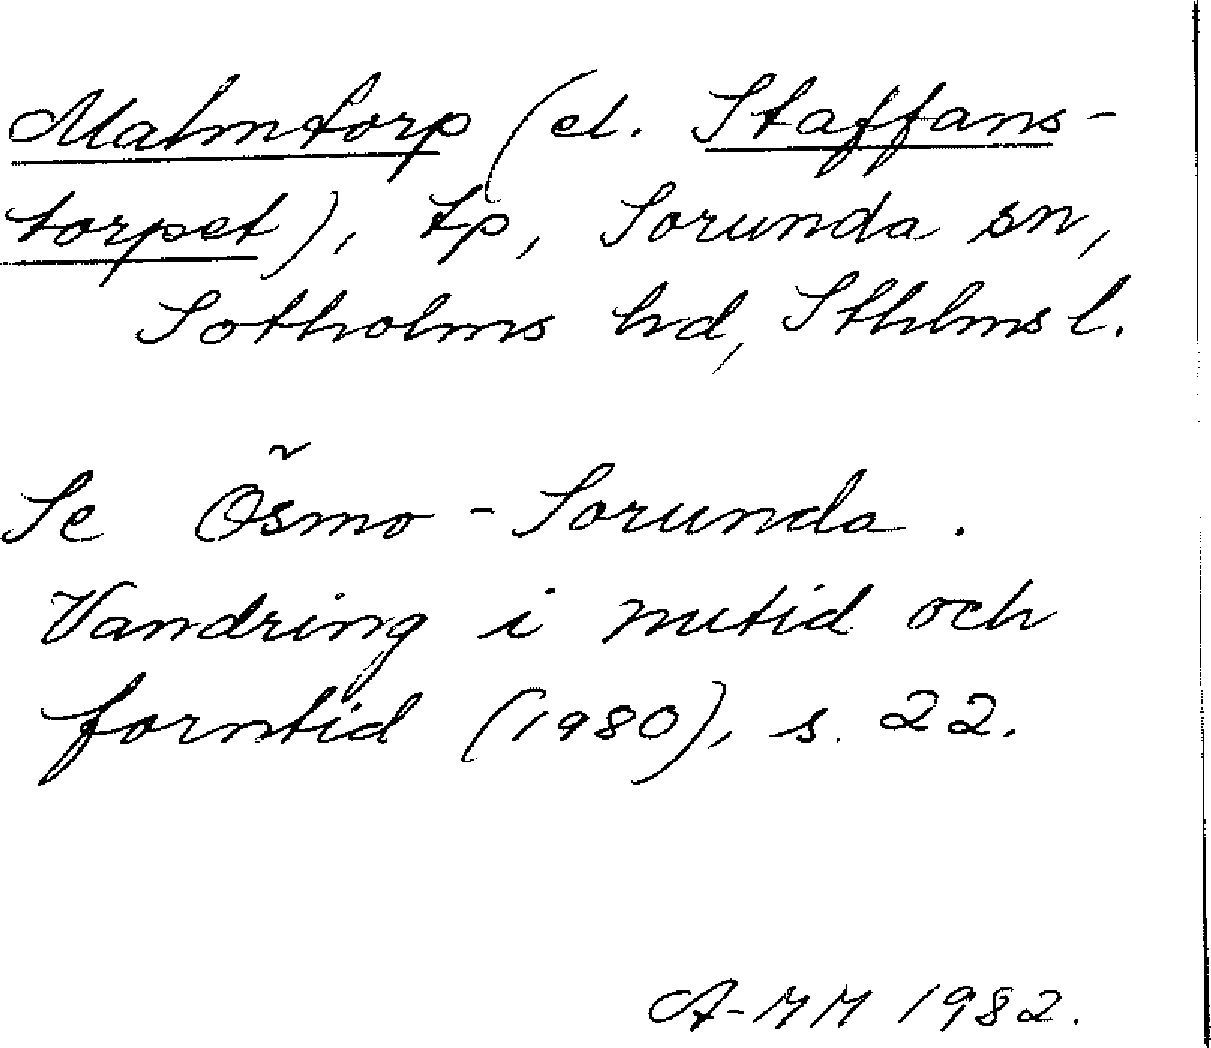 Malmtorp (el. Staffans-
torpet), tp, Sorunda sn,
Sotholms hd, Sthlms l.
Se Ösmo - Sorunda.
Vandring i nutid och
forntid (1980), s. 22.
A-MM 1982.